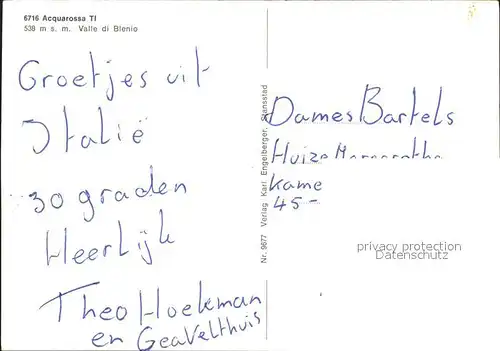 6716 Acquarossa TI
538 m s. m. Valle di Blenio
Groetjes uit
Italië
30 graden
Heerlijk
Theo Hoekman
en Gea Velthuis
Nr. 9677 Verlag Karl Engelberger, Stansstad
Dames Bartels
Huize
Kame
45-
privacy protection
Datenschutz